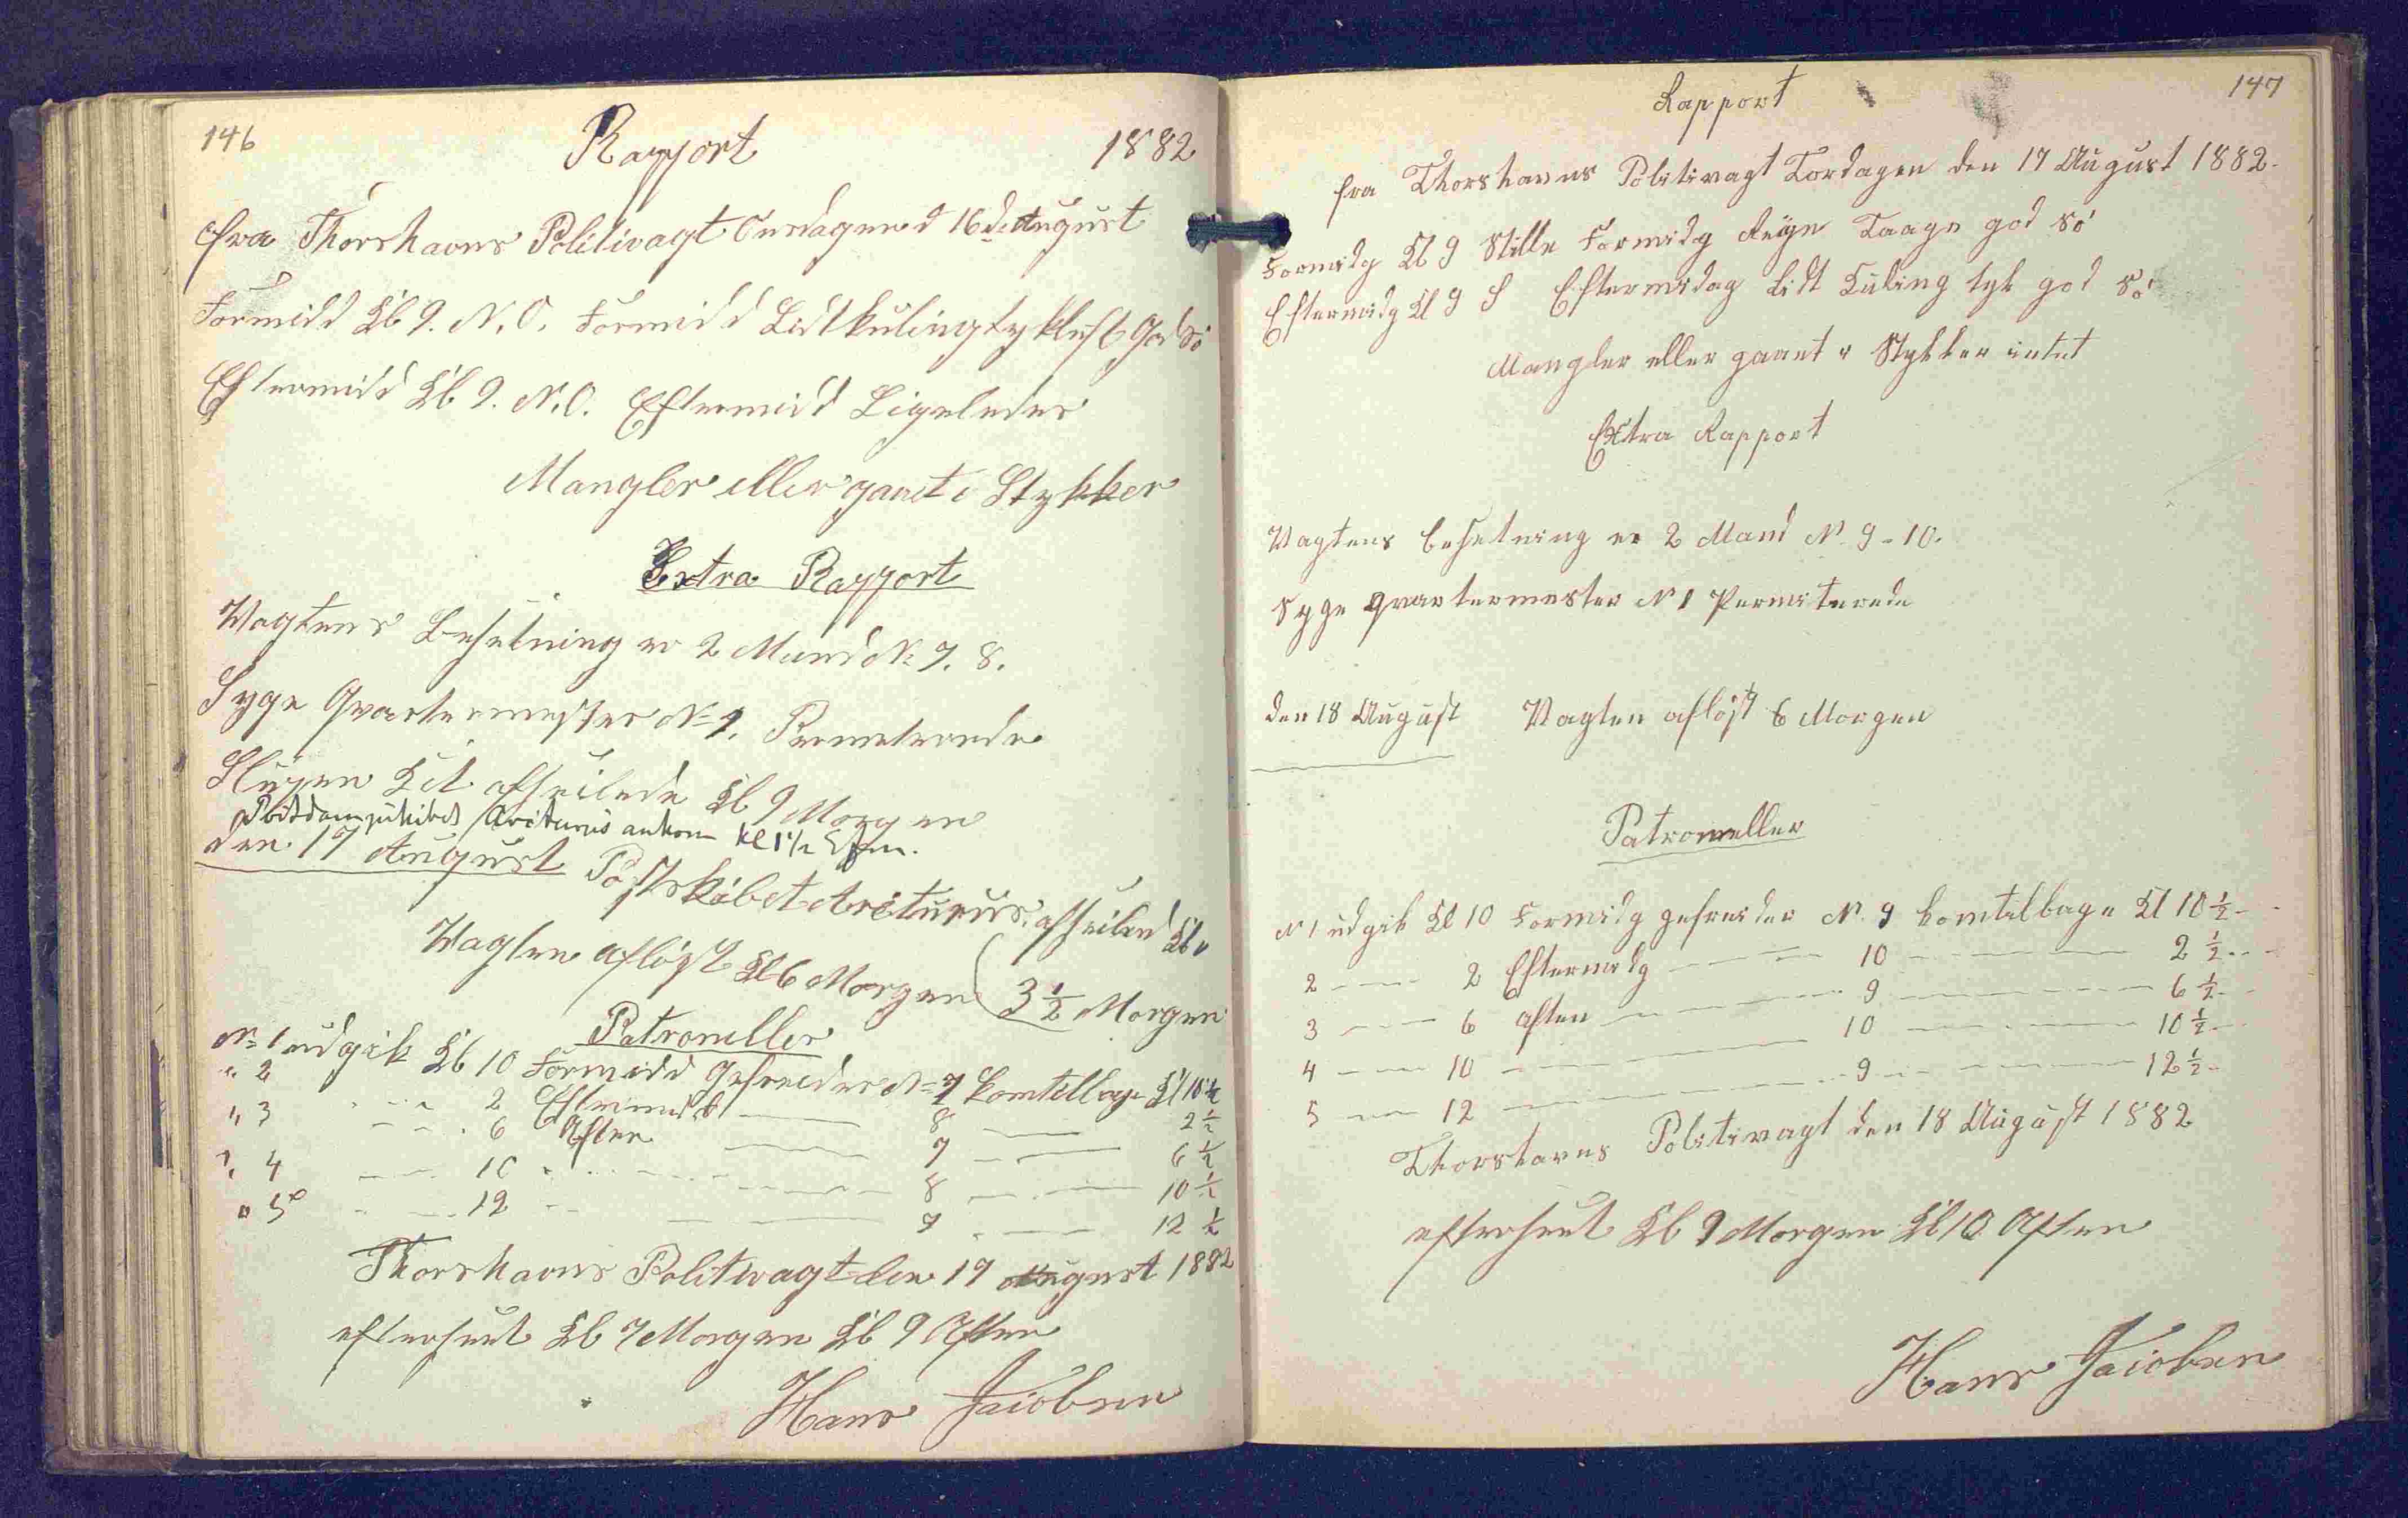 146
Rapport 1882
fra Thorshavns Politivagt Onsdagen d 16de August
Formidd Kl 9. N.O. Formidd Lidt kuling tyk luft God Sö
Eftermidd Kl 9. N.O. Eftermidd Ligeledes
Mangler eller gaaet i Stykker
Extra Rapport
Vagtens Besetning er 2 Mand No 7. 8.
Syge Qvartermester No 1. Permeterede
Slupen afseilede Kl 9 Morgen
Postdampskibet Arcturus ankom kl 1 1/2 Efm.
den 17 August Postskibet Arcturus afseilede Kl
Vagten aflöst Kl 6 Morgen ( 3 1/2 Morgen
Patroneller
No 1 udgik Kl 10 Formidd Gefreider No 7 komtelbage Kl 10 1/2
" 2 - - - 2 Eftermidd — 8 — 2 1/2
" 3 - - - 6 Aften — 7 — 6 1/2
" 4 — 10 - - — 8 — 10 1/2
" 5 - - - 12 - - — 7 — 12 1/2
Thorshavns Politivagt den 17 August 1882
efterseet Kl 7 Morgen Kl 9 Aften
Hans Jacobsen
147
Rapport
fra Thorshavns Politivagt Tordagen den 17 August 1882.
Formidg Kl 9 Stille Formidg Regn Taage god Sö
Eftermidg Kl 9 S Eftermidag Lidt Kuling tyk god Sö
Mangler eller gaaet i Stykker intet
Extra Rapport
Vagtens besetning er 2 Mand N. 9 - 10.
Syge Qvartermester N 1 Permiterede
den 18 August Vagten aflöst 6 Morgen
Patroneller
N 1 udgik Kl 10 Formidg gefreider N. 9 komtelbage Kl 10 1/2 -
2 - - - 2 Eftermidg — 10 — 2 1/2 - -
3 — 6 aften — 9 — 6 1/2 -
4 — 10 — 10 — 10 1/2 -
5 — 12 — 9 — 12 1/2 -
Thorshavns Politivagt den 18 August 1882
efterseet Kl 9 Morgen Kl 10 Aften
Hans Jacobsen